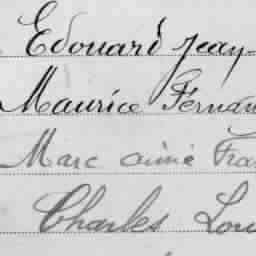 Edouard Jean
Maurice Fernan
Marc aimé Fran
Charles Lou